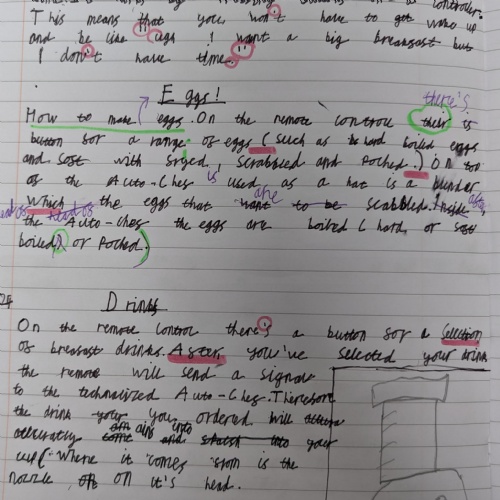 This means that you won't have to get wake up
and be like ugh I want a big breakfast but
I don't have time."
Eggs!
there's
How to make eggs. On the remote control their is
button for a range of eggs (such as hard boiled eggs
and soft with fryed, scrabbled and Poched.) On top
of the Auto-Chef is used as a hat is a blender
which the eggs that are want to be scabbled. Inside after
head of head of
the Auto-Chef the eggs are boiled (hard or soft
boiled) or Poched.)
Drinks
On the remote control there's a button for a selection
of breakfast drinks. After you've selected your drink
the remote will send a signal
to the technalized Auto-Chef. Therefore
the drink your you ordered will
accuratly come and into your
cup. Where it comes from is the
nozzle on it's head.